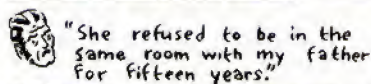 "She refused to be in the
same room with my father
for fifteen years."